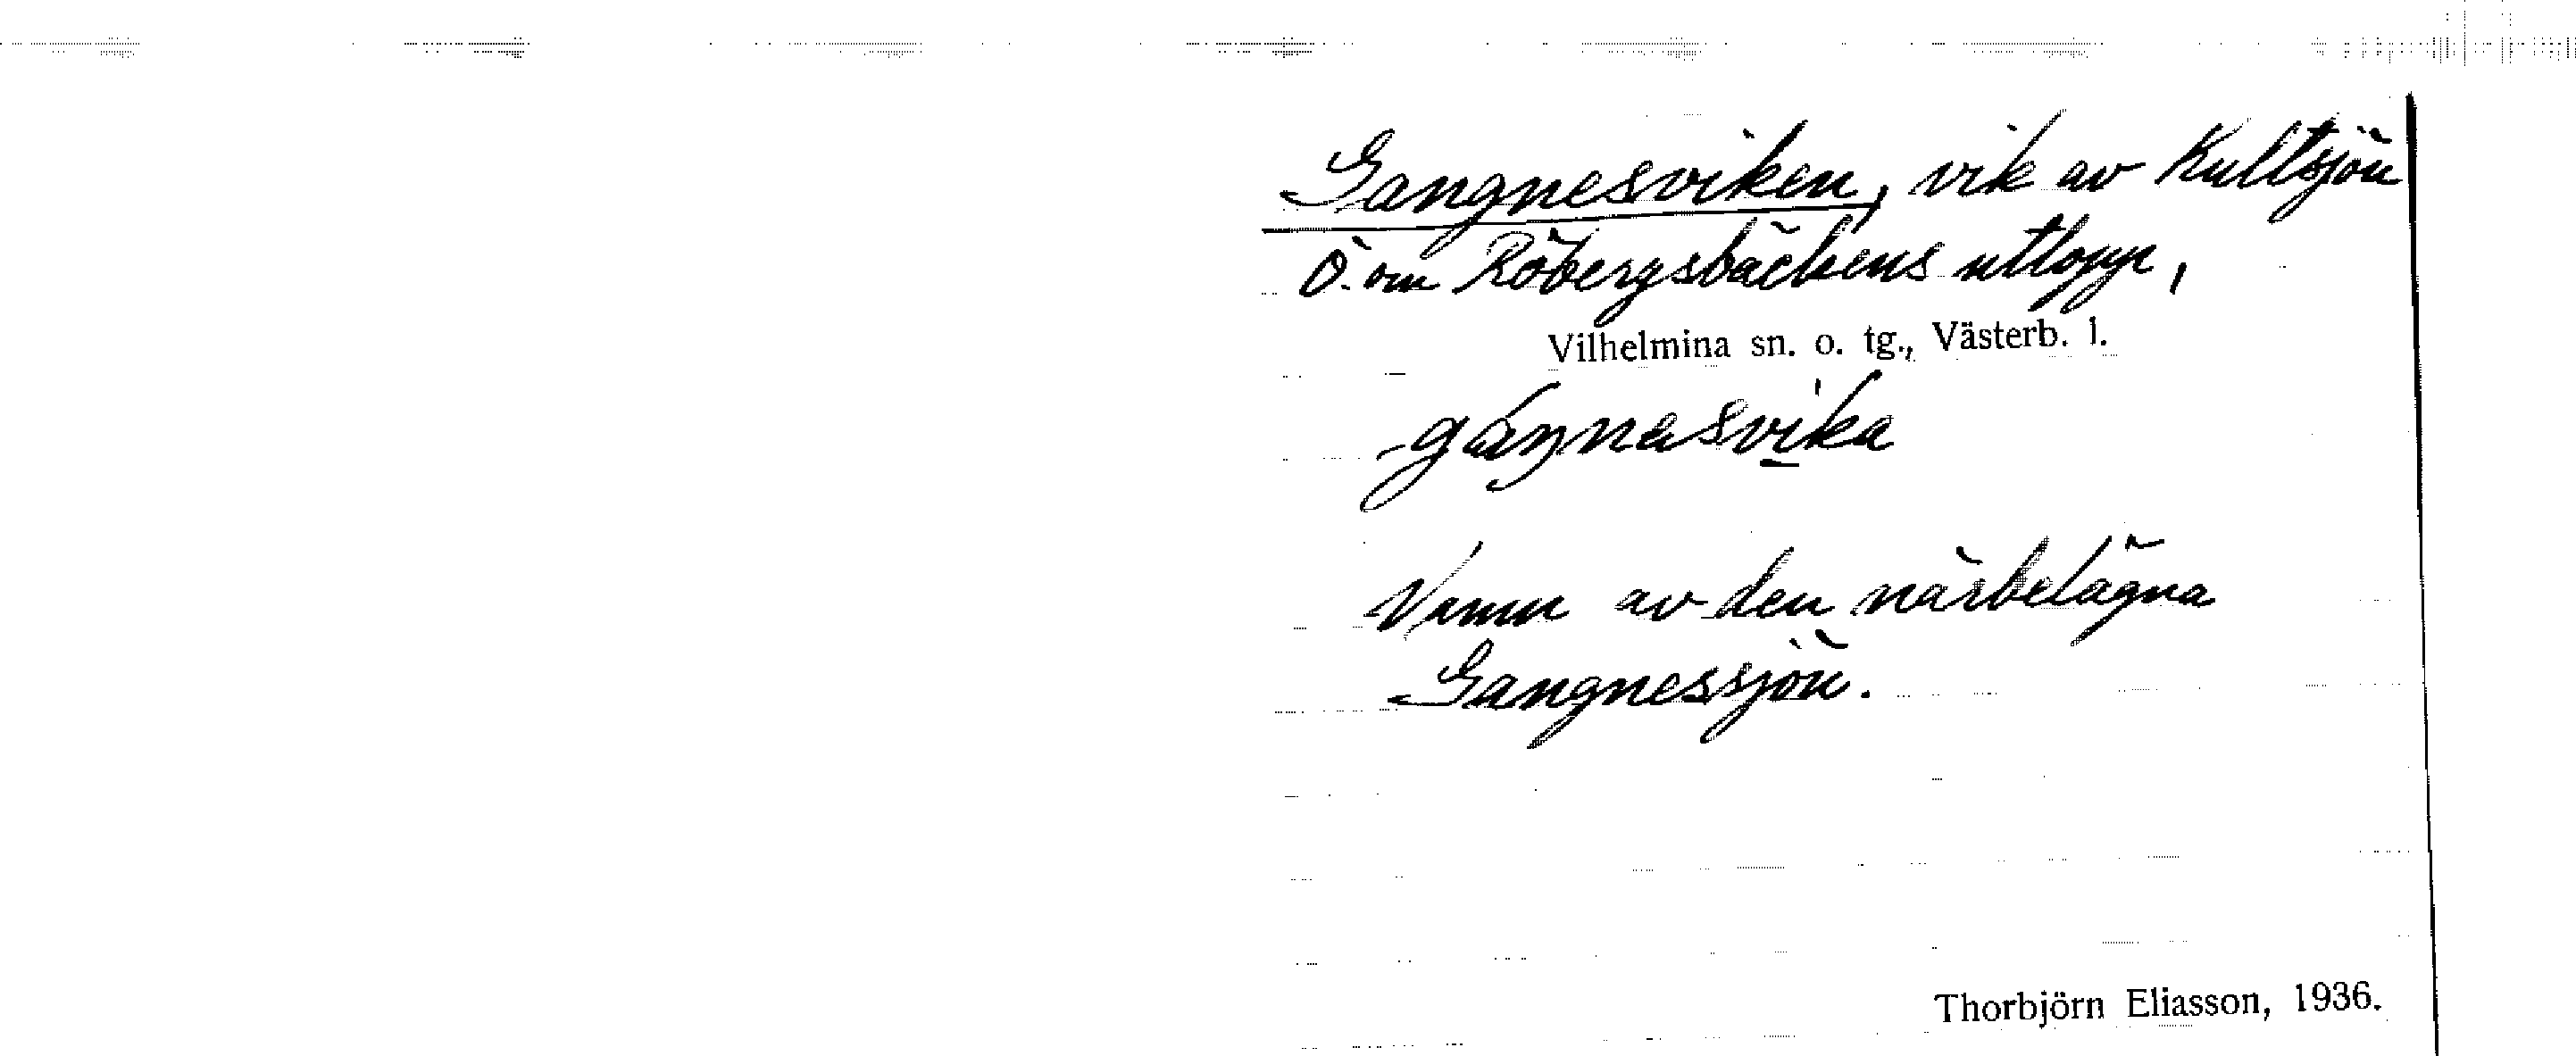 Gangnesviken, vik av Kultsjön
Ö. om Röbergsbäckens utlopp,
Vilhelmina sn. o. tg., Västerb. l.
gáŋnasvìka
Namn av den närbelägna
Gangnessjön.
Thorbjörn Eliasson, 1936.